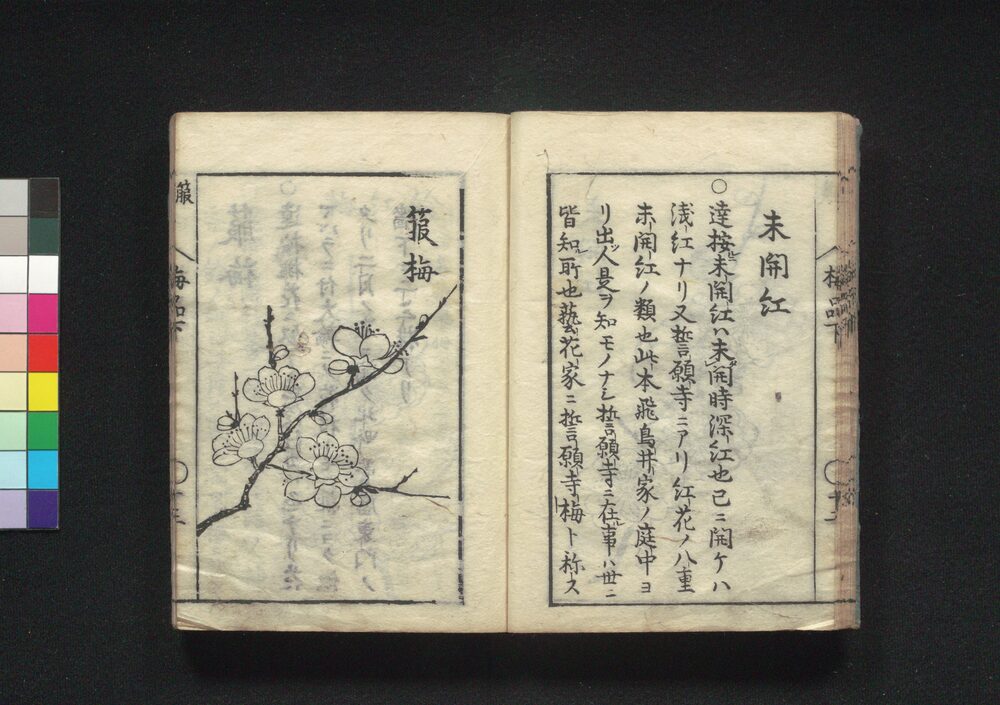 未開紅
○達按ニ未開紅ハ未開時深紅也已ニ開ケハ
浅紅ナリ又誓願寺ニアリ紅花ノ八重
未開紅ノ類也此本飛鳥井家ノ庭中ヨ
リ出ツ人是ヲ知モノナシ誓願寺ニ在事ハ世ニ
皆知所也藝花家ニ誓願寺梅ト称ス
梅品下
箙梅
箙
梅品下